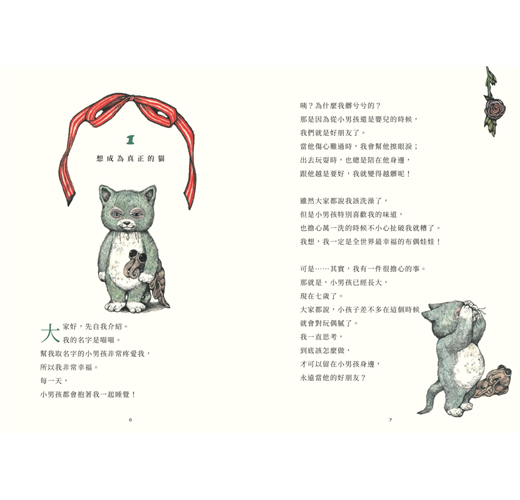 1
想成為真正的貓
大家好，先自我介紹。
我的名字是喵喵。
幫我取名字的小男孩非常疼愛我，
所以我非常幸福。
每一天，
小男孩都會抱著我一起睡覺！
6
咦？為什麼我髒兮兮的？
那是因為從小男孩還是嬰兒的時候，
我們就是好朋友了。
當他傷心難過時，我會幫他擦眼淚；
出去玩耍時，也總是陪在他身邊，
跟他越是要好，我就變得越髒呢！
雖然大家都說我該洗澡了，
但是小男孩特別喜歡我的味道，
也擔心萬一洗的時候不小心扯破我就糟了。
我想，我一定是全世界最幸福的布偶娃娃！
可是⋯⋯其實，我有一件很擔心的事。
那就是，小男孩已經長大，
現在七歲了。
大家都說，小孩子差不多在這個時候
就會對玩偶膩了。
我一直思考，
到底該怎麼做，
才可以留在小男孩身邊，
永遠當他的好朋友？
7